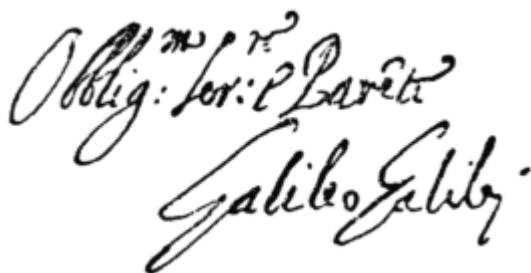 Oblig:mo Ser:re e Parẽte
Galileo Galilei.